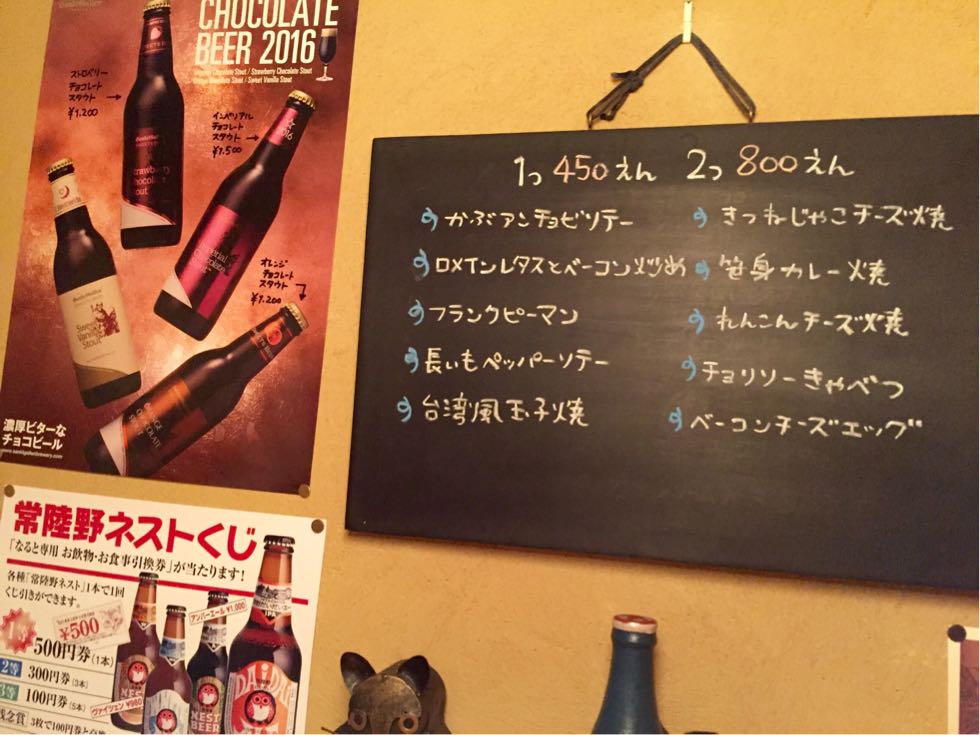 CHOCOLATE
BEER 2016
Imperial Chocolate Stout / Strawberry Chocolate Stout
Orange Chocolate Stout / Sweet Vanilla Stout
ストロベリー
チョコレート
スタウト→
¥1,200
インペリアル
チョコレート
スタウト→
¥1,500
オレンジ
チョコレート
スタウト
¥1,200
Strawberry
Chocolate
Stout
Imperial
Chocolate
Stout
Sweet
Vanilla
Stout
ORANGE
CHOCOLATE
STOUT
濃厚ビターな
チョコビール
www.sanktgallenbrewery.com
1つ 450えん 2つ 800えん
かぶアンチョビソテー
ロメインレタスとベーコン炒め
フランクピーマン
長いもペッパーソテー
台湾風玉子焼
きつねじゃこチーズ焼
笹身カレー焼
れんこんチーズ焼
チョリソーきゃべつ
ベーコンチーズエッグ
常陸野ネストくじ
「なると専用 お飲物・お食事引換券」が当たります!
各種「常陸野ネスト」1本で1回
くじ引きができます。
¥500
500円券(1本)
2等 300円券(3本)
3等 100円券(5本)
残念賞 3枚で100円券と交換
アンバーエール ¥1,000
ヴァイツェン ¥980
IPA
DAiDAi
NEST
BEER